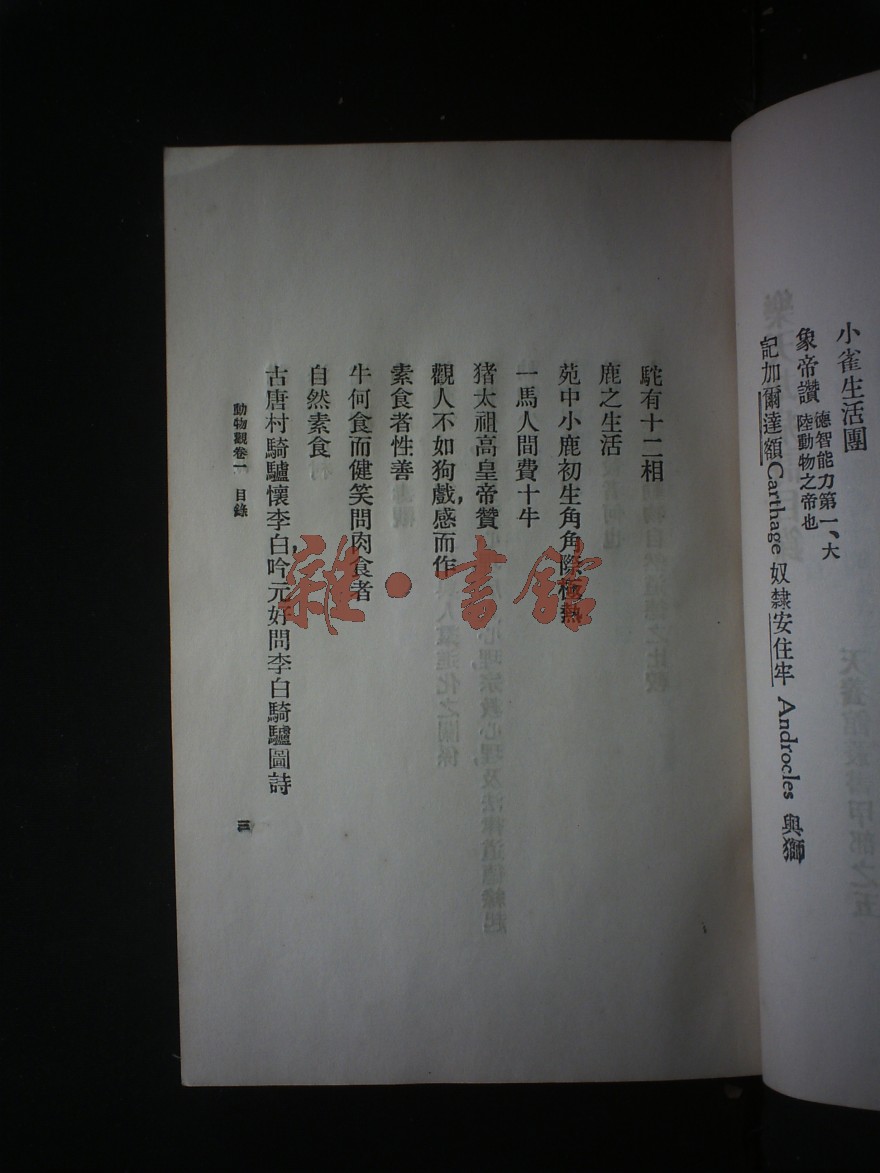 小雀生活團
象帝讚 德智能力第一、大陸動物之帝也
記加爾達額Carthage 奴隸安住牢 Androcles 與獅
駝有十二相
鹿之生活
苑中小鹿初生角角際極熱
一馬人間費十牛
猪太祖高皇帝贊
觀人不如狗戲，感而作
素食者性善
牛何食而健笑問肉食者
自然素食
古唐村騎驢懷李白吟元好問李白騎驢圖詩
動物觀卷一 目錄
三
雜·書館